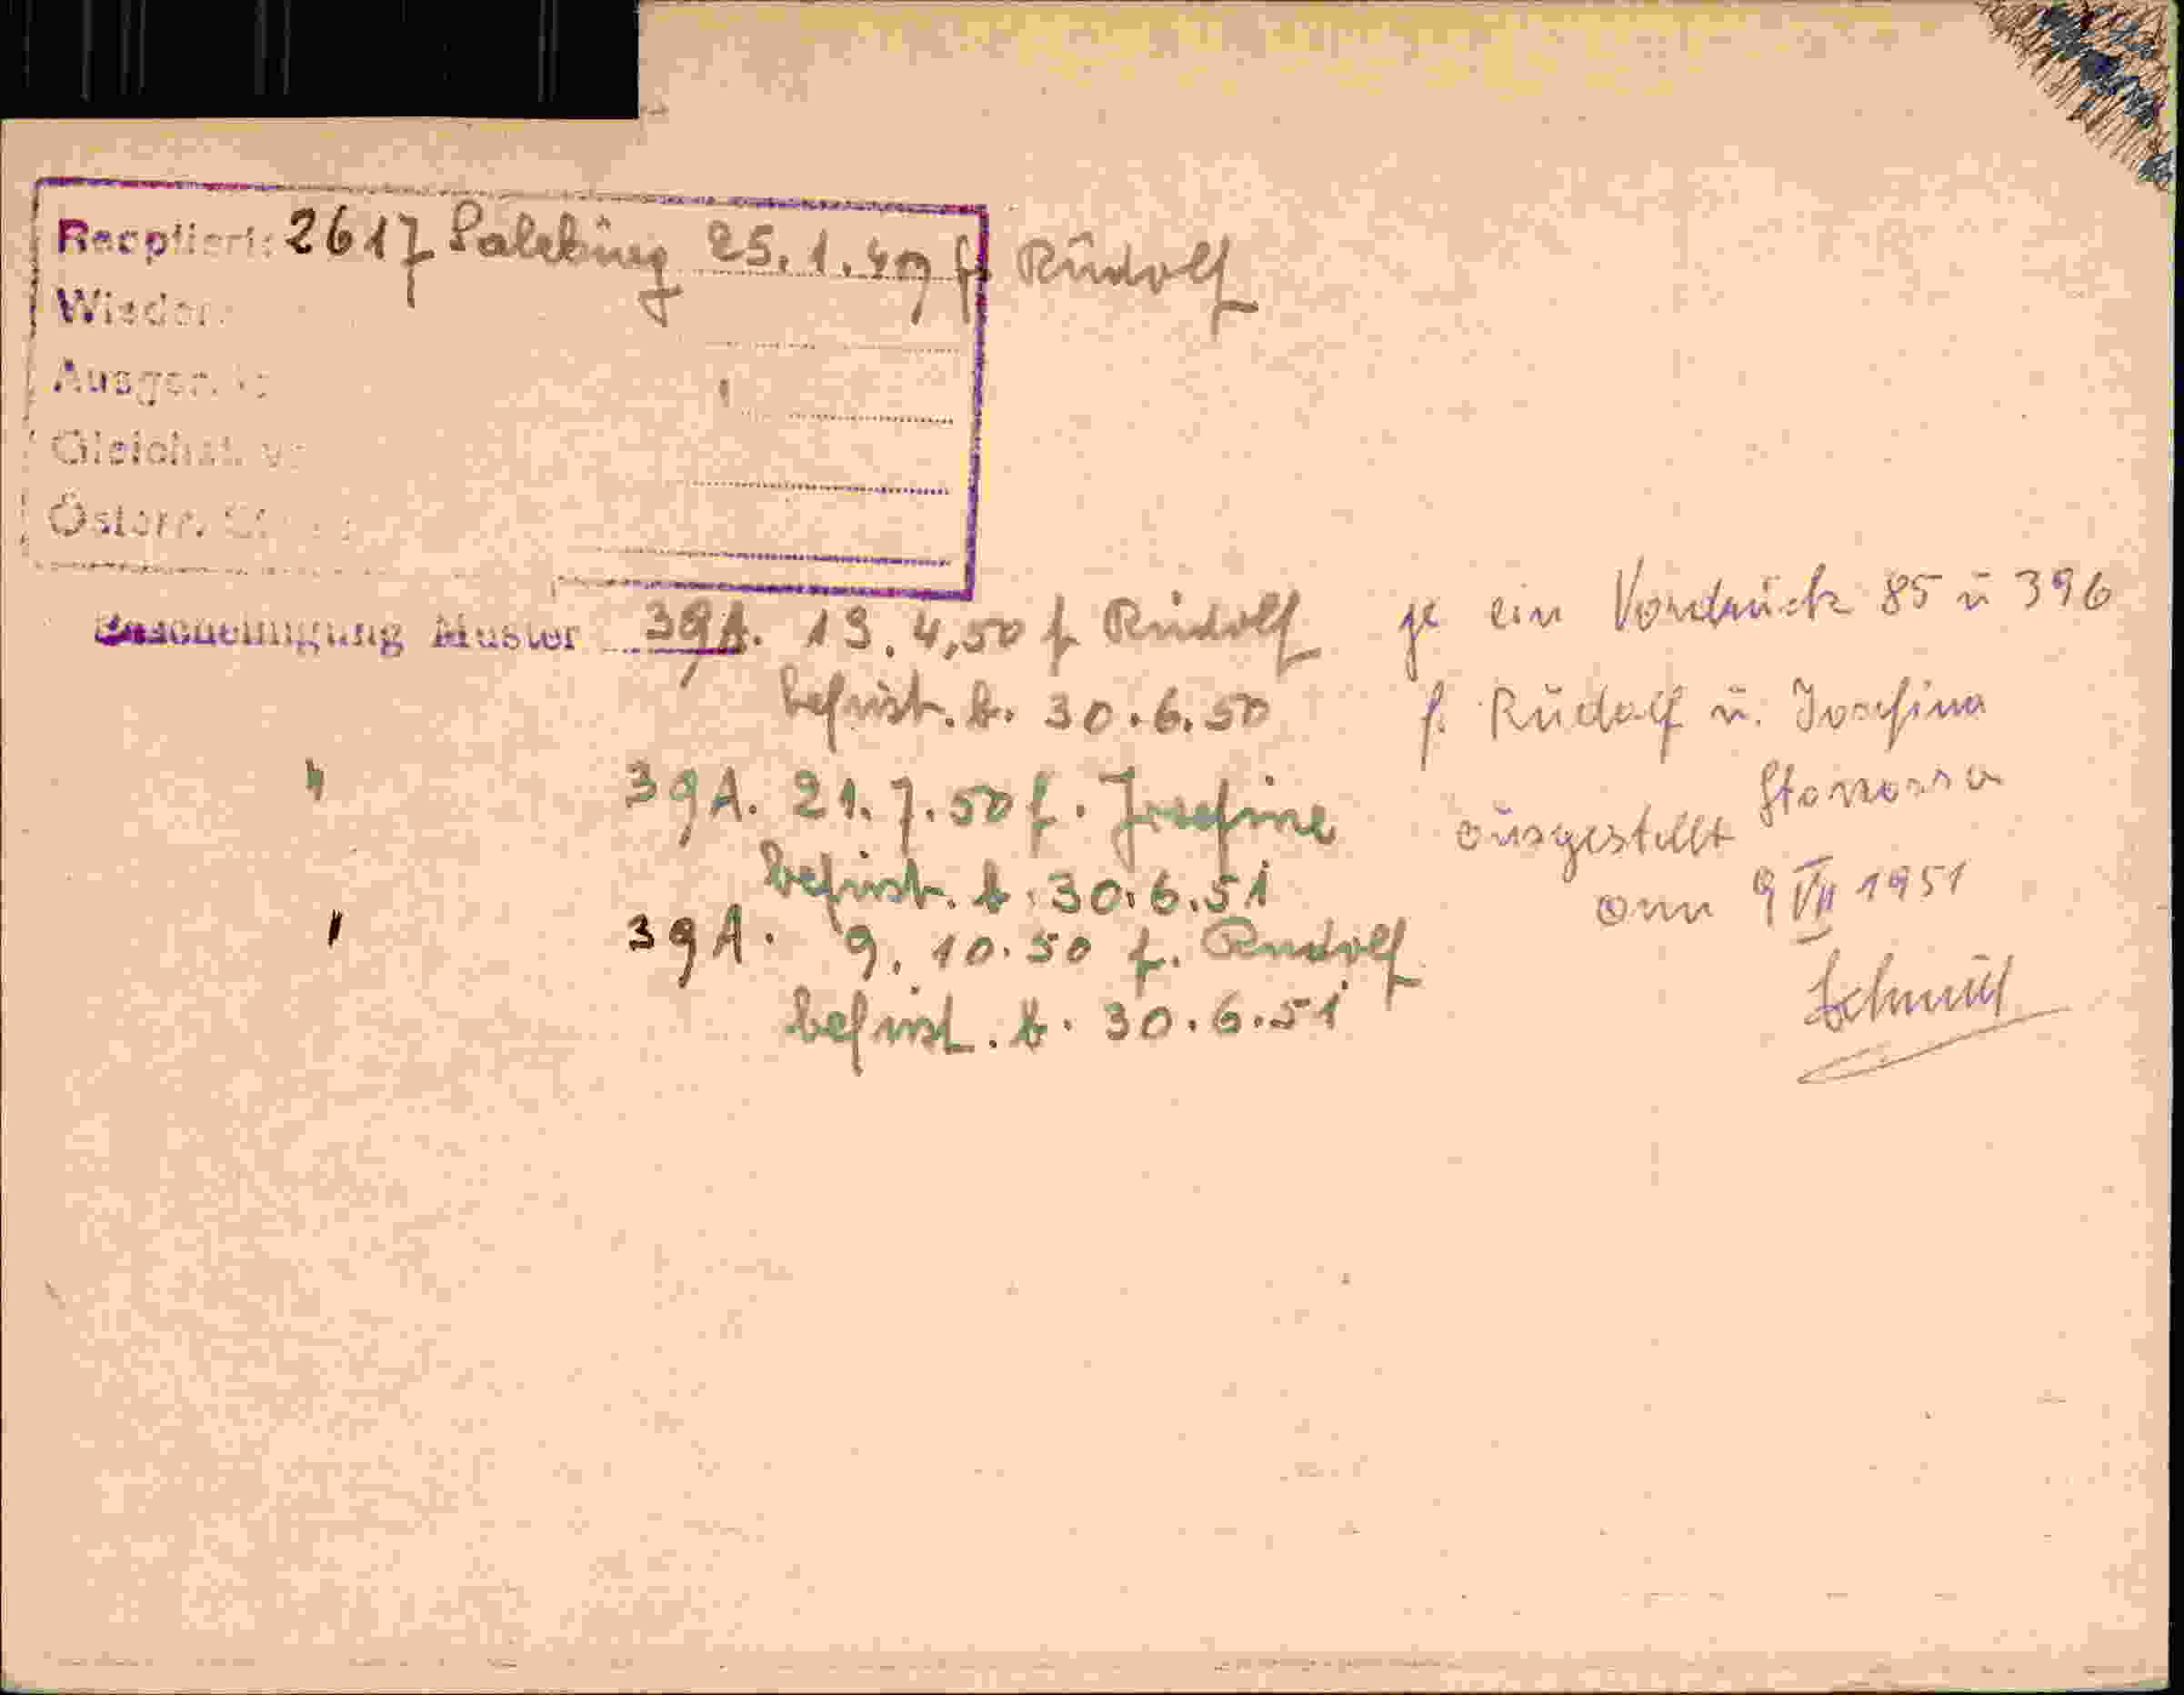 Reoptiert: 2617 Salzburg 25.1.49 f. Rudolf
Wieder
Ausger.
Gleichst.
Österr. St
Bescheinigung Muster 39A. 13.4.50 f Rudolf
befrist. b. 30.6.50
" 39A. 21.7.50 f. Josefine
befrist. b. 30.6.51
" 39A. 9.10.50 f. Rudolf
befrist. b. 30.6.51
je ein Vordruck 85 u 396
f. Rudolf u. Josefina
ausgestellt
am 9 VII 1951